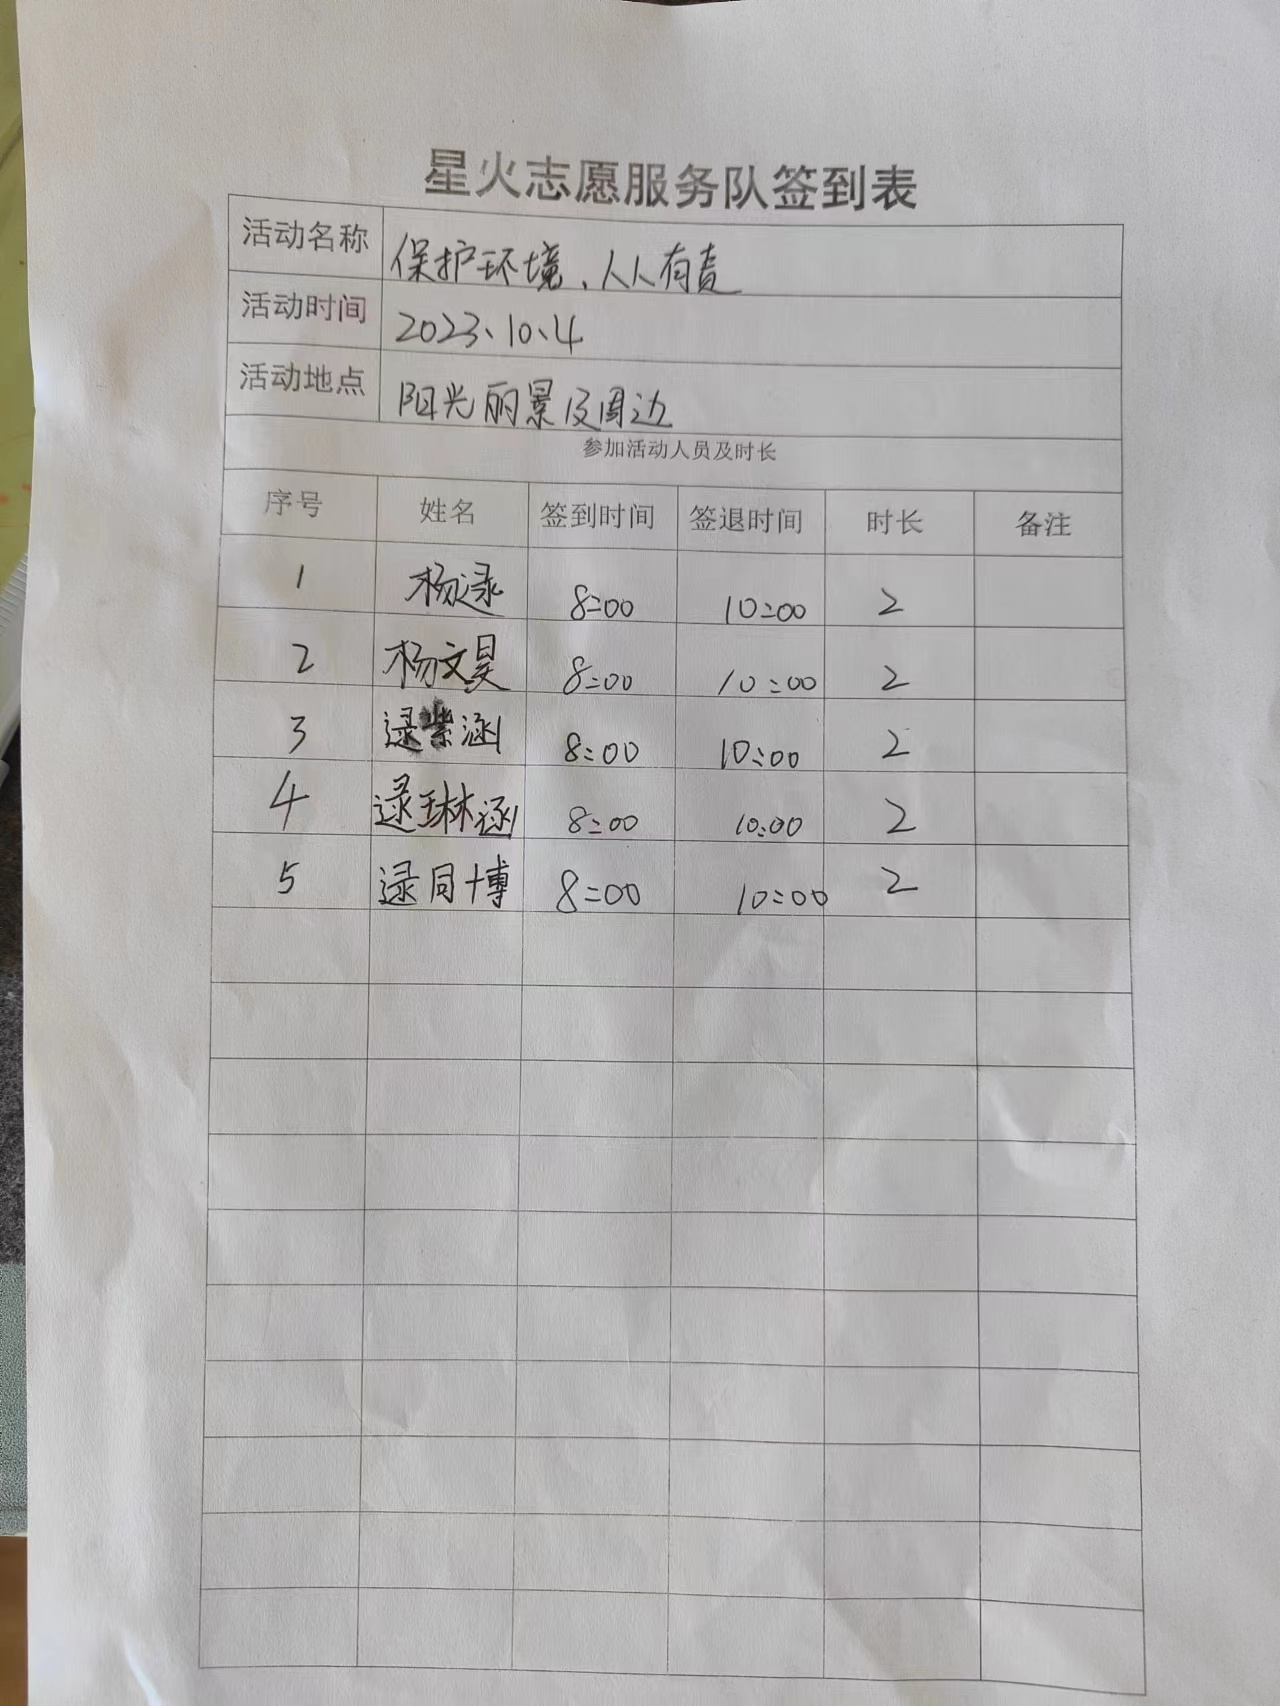 星火志愿服务队签到表
活动名称 保护环境、人人有责
活动时间 2023、10、4
活动地点 阳光丽景及周边
参加活动人员及时长
序号 姓名 签到时间 签退时间 时长 备注
1 杨逯 8:00 10:00 2
2 杨文昊 8:00 10:00 2
3 逯紫涵 8:00 10:00 2
4 逯琳涵 8:00 10:00 2
5 逯同博 8:00 10:00 2